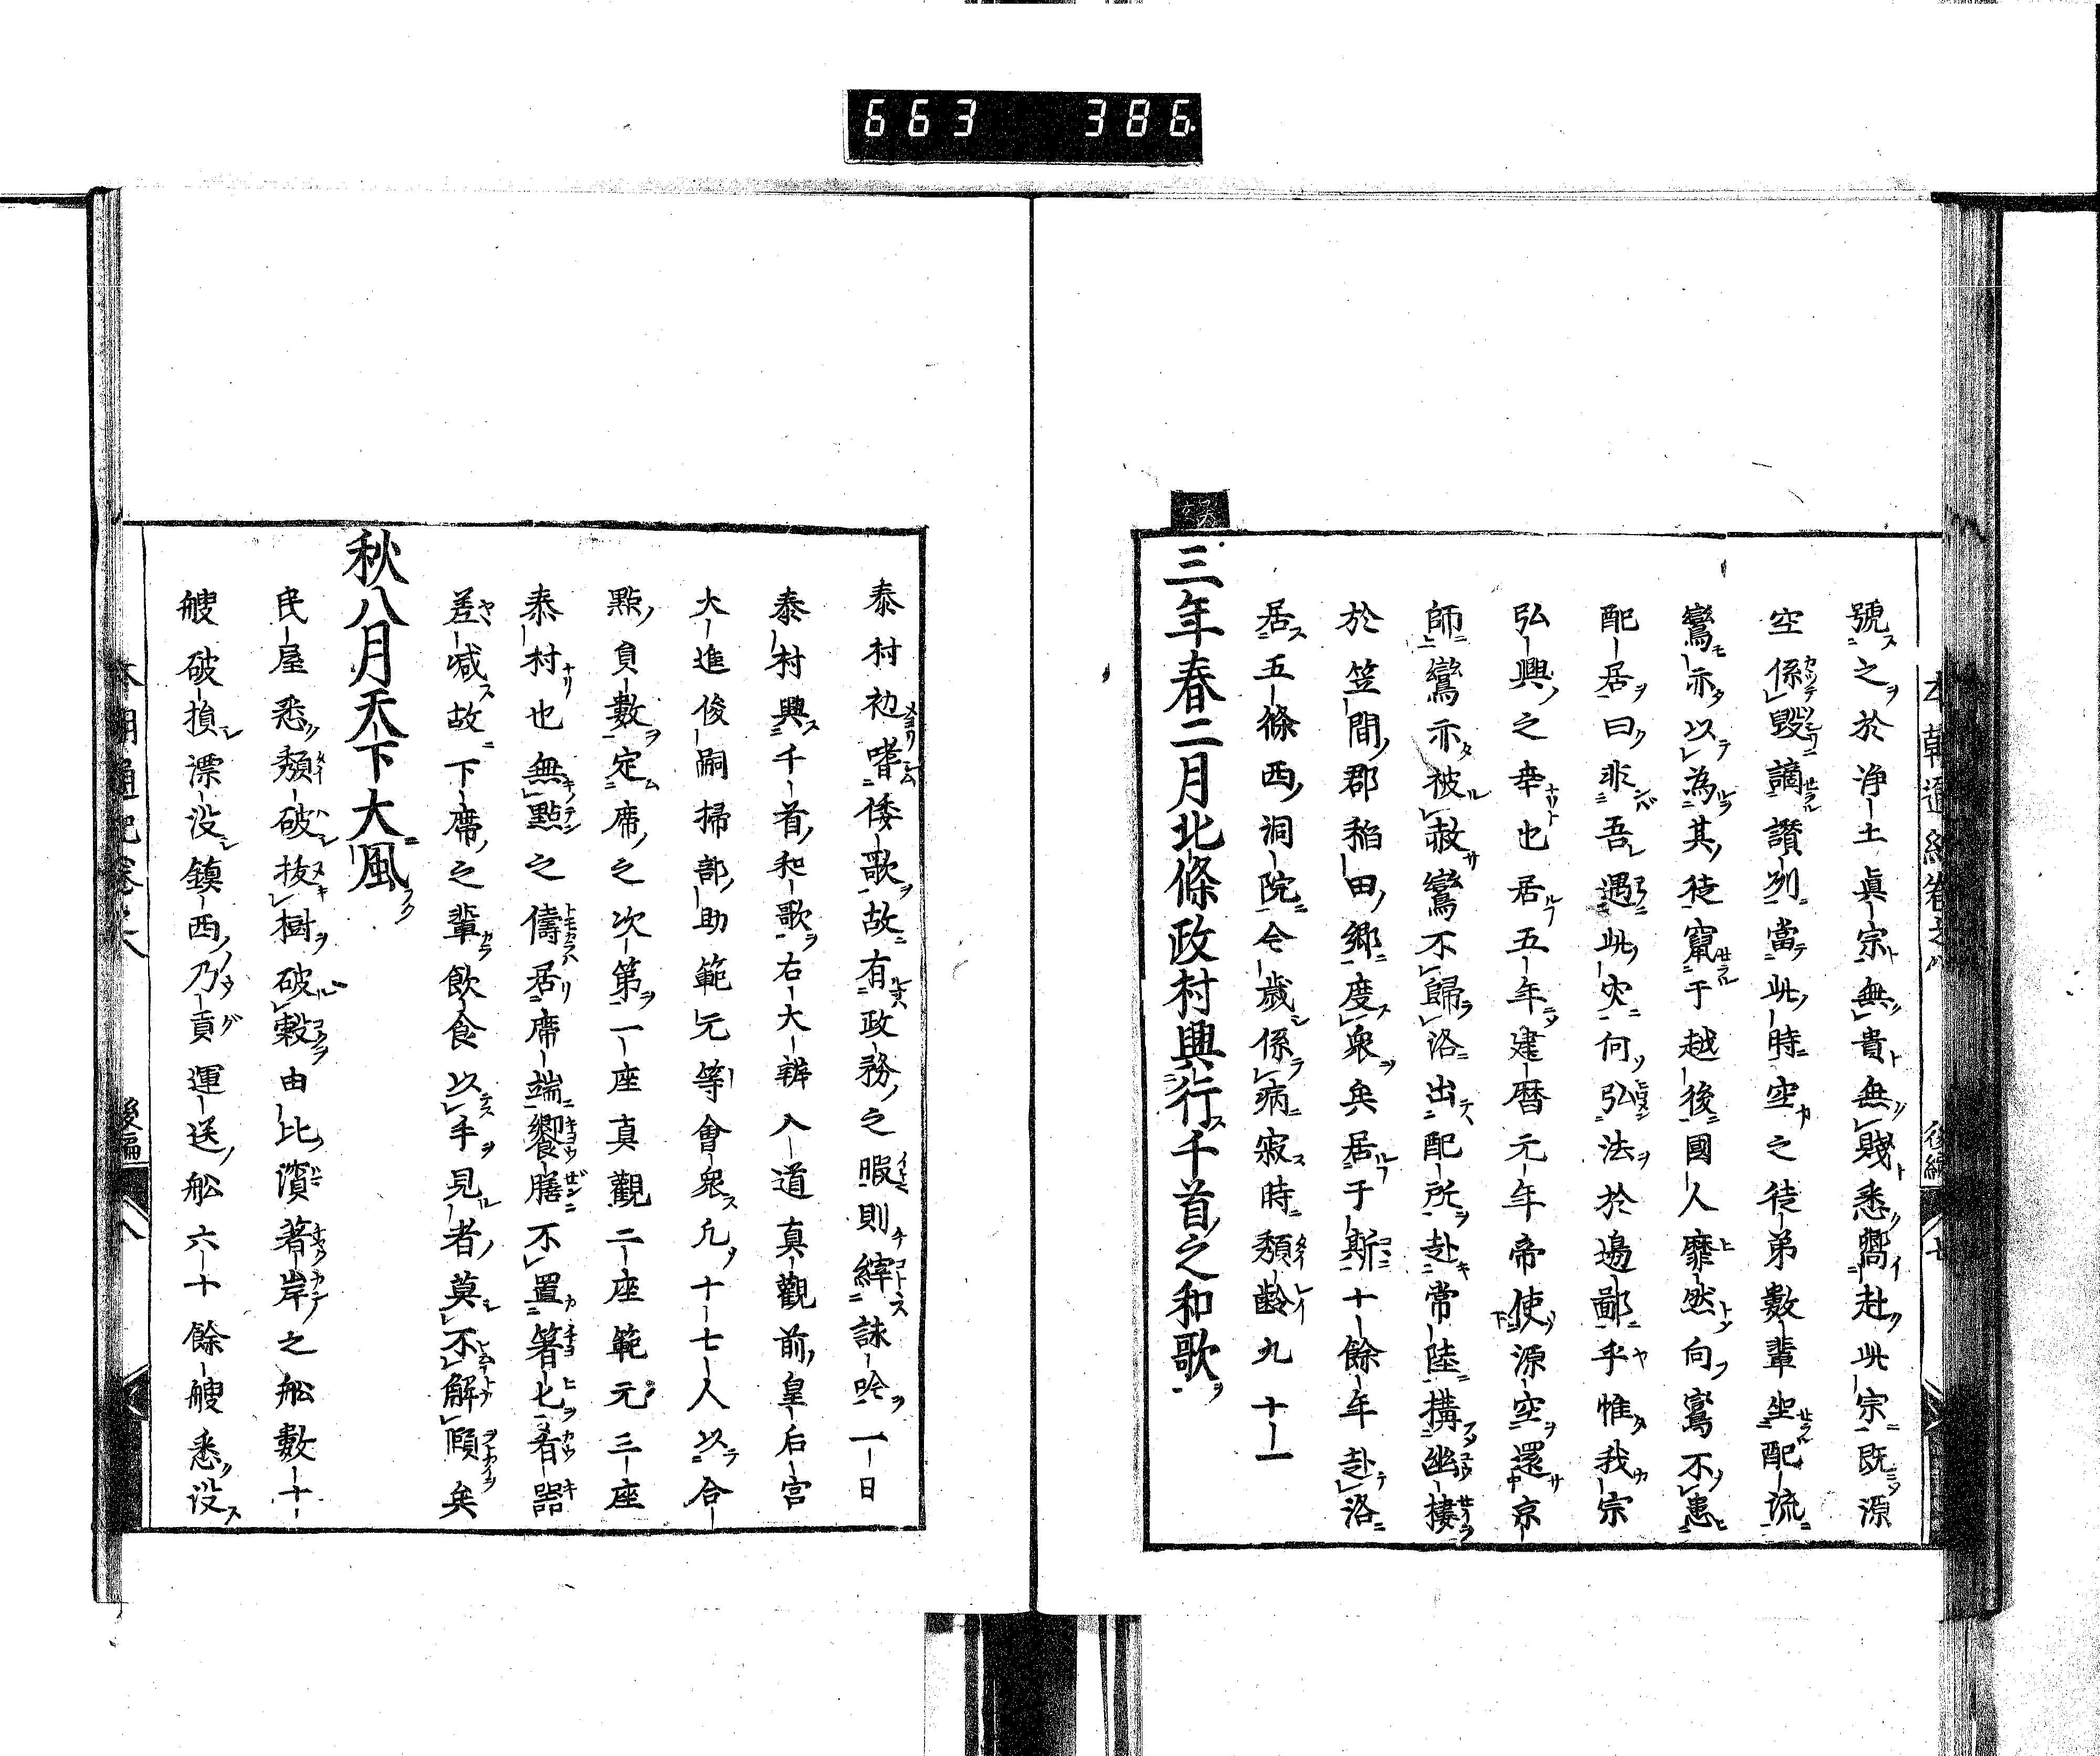 663 386
號之於浄土眞宗無貴無賤悉嚮赴此宗既源
空係毀謫讃列當此時空之徒弟數輩坐配流
鸞亦以為其徒竄于越後國人靡然向鸞不患
配居曰非吾遇此灾何弘法於邊鄙乎惟我宗
弘興之幸也居五年建暦元年帝使源空還京
師鸞亦被赦鸞不歸洛出配所赴常陸構幽棲
於笠間郡稻田郷度衆矣居于斯十餘年赴洛
居五條西洞院今歳係病寂時頽齢九十一
三年春二月北條政村興行千首之和歌
泰村初嗜倭歌故有政務之暇則縡詠吟一日
泰村興千首和歌右大辨入道真觀前皇后宮
大進俊嗣掃部助範元等會衆凢十七人以合
點負數定席之次第一座真觀二座範元三座
泰村也無點之儔居席端饗膳不置箸匕肴器
差减故下席之輩飲食以手見者莫不解頤矣
秋八月天下大風
民屋悉頽破抜樹破穀由比濱著岸之舩數十
艘破損漂没鎮西乃貢運送舩六十餘艘悉没